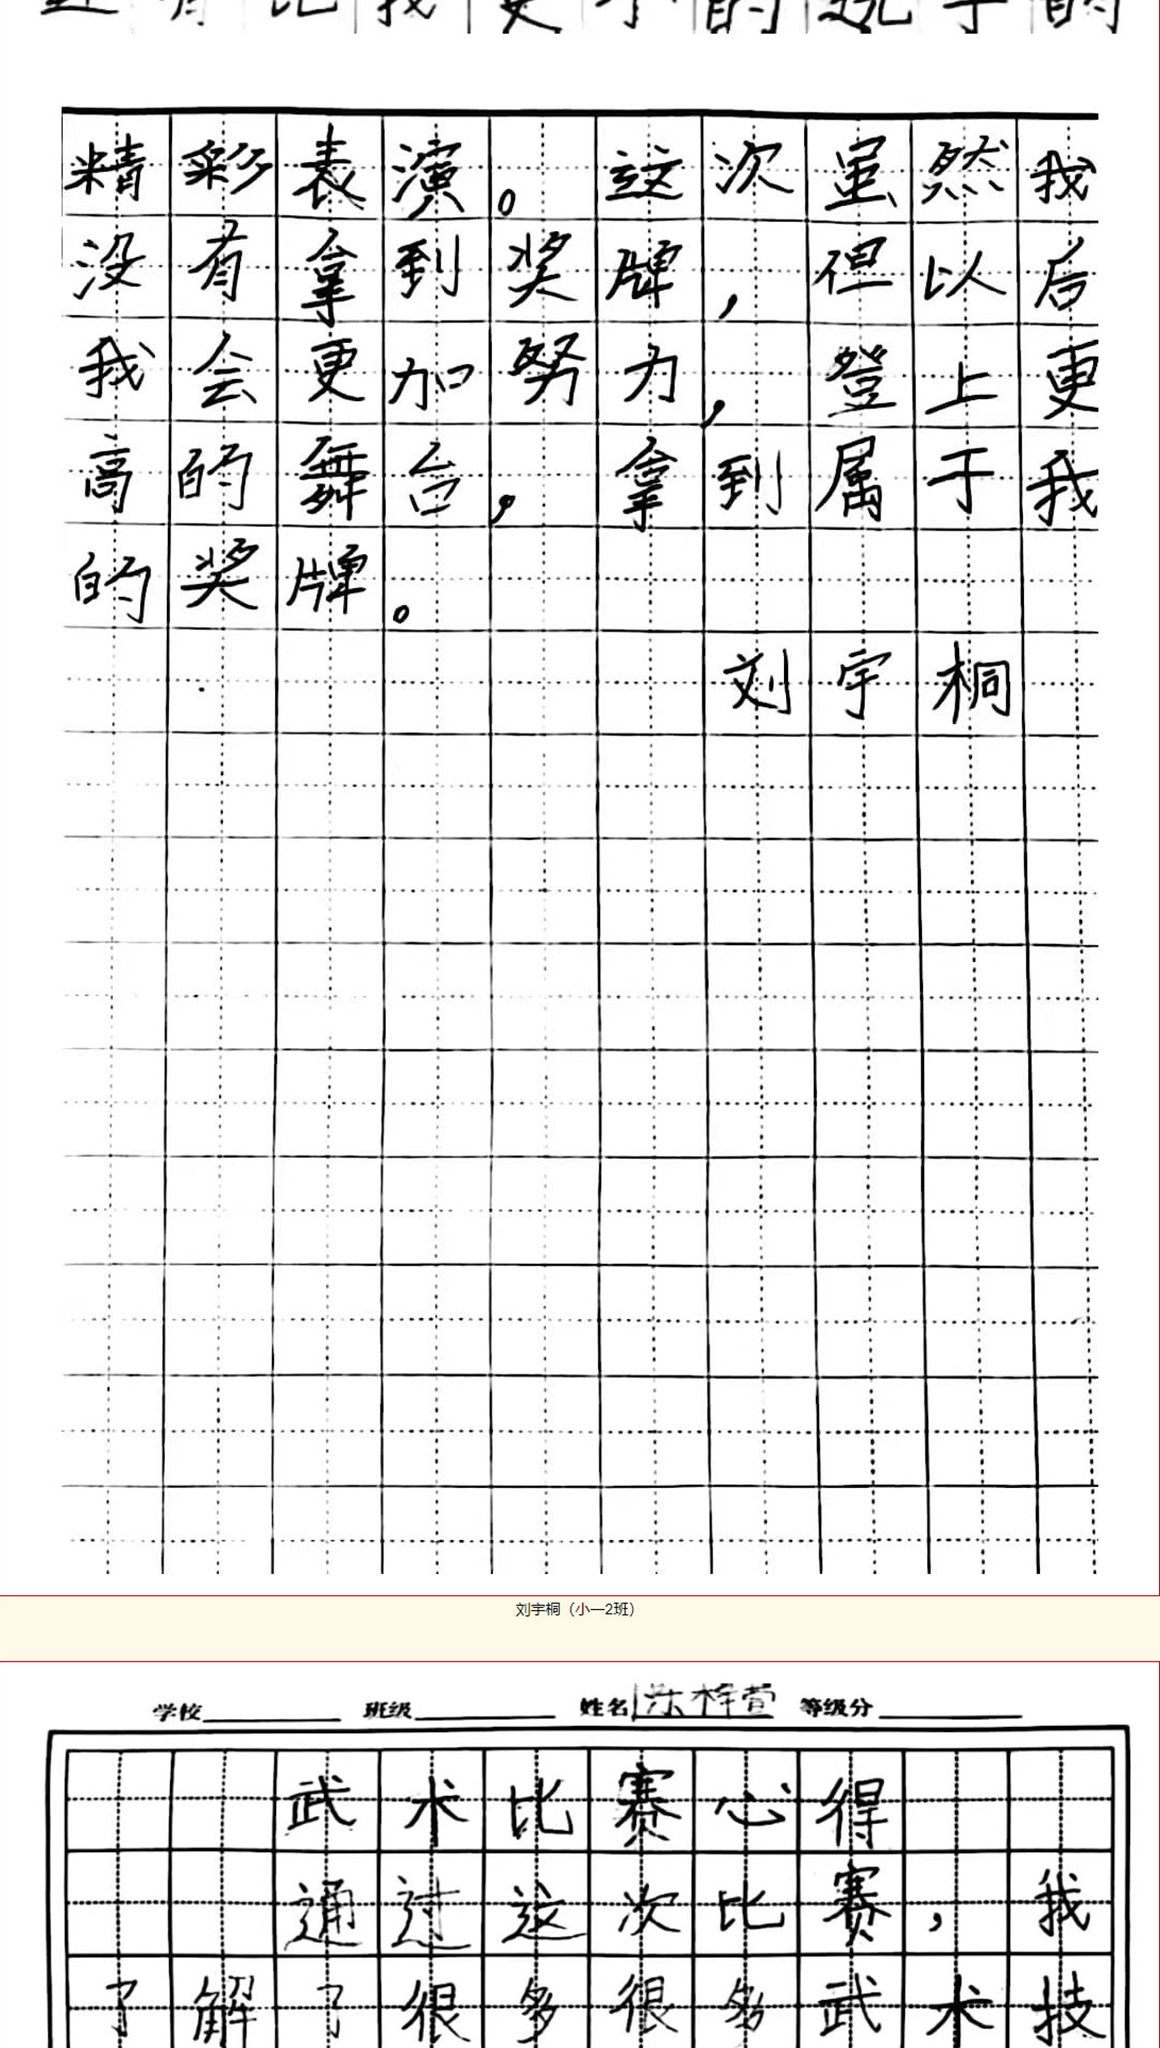 还有比我更小的选手的
精彩表演。这次虽然我
没有拿到奖牌,但以后
我会更加努力,登上更
高的舞台,拿到属于我
的奖牌。
刘宇桐
刘宇桐(小一2班)
学校 班级 姓名 陈梓萱 等级分
武术比赛心得
通过这次比赛,我
了解了很多很多武术技